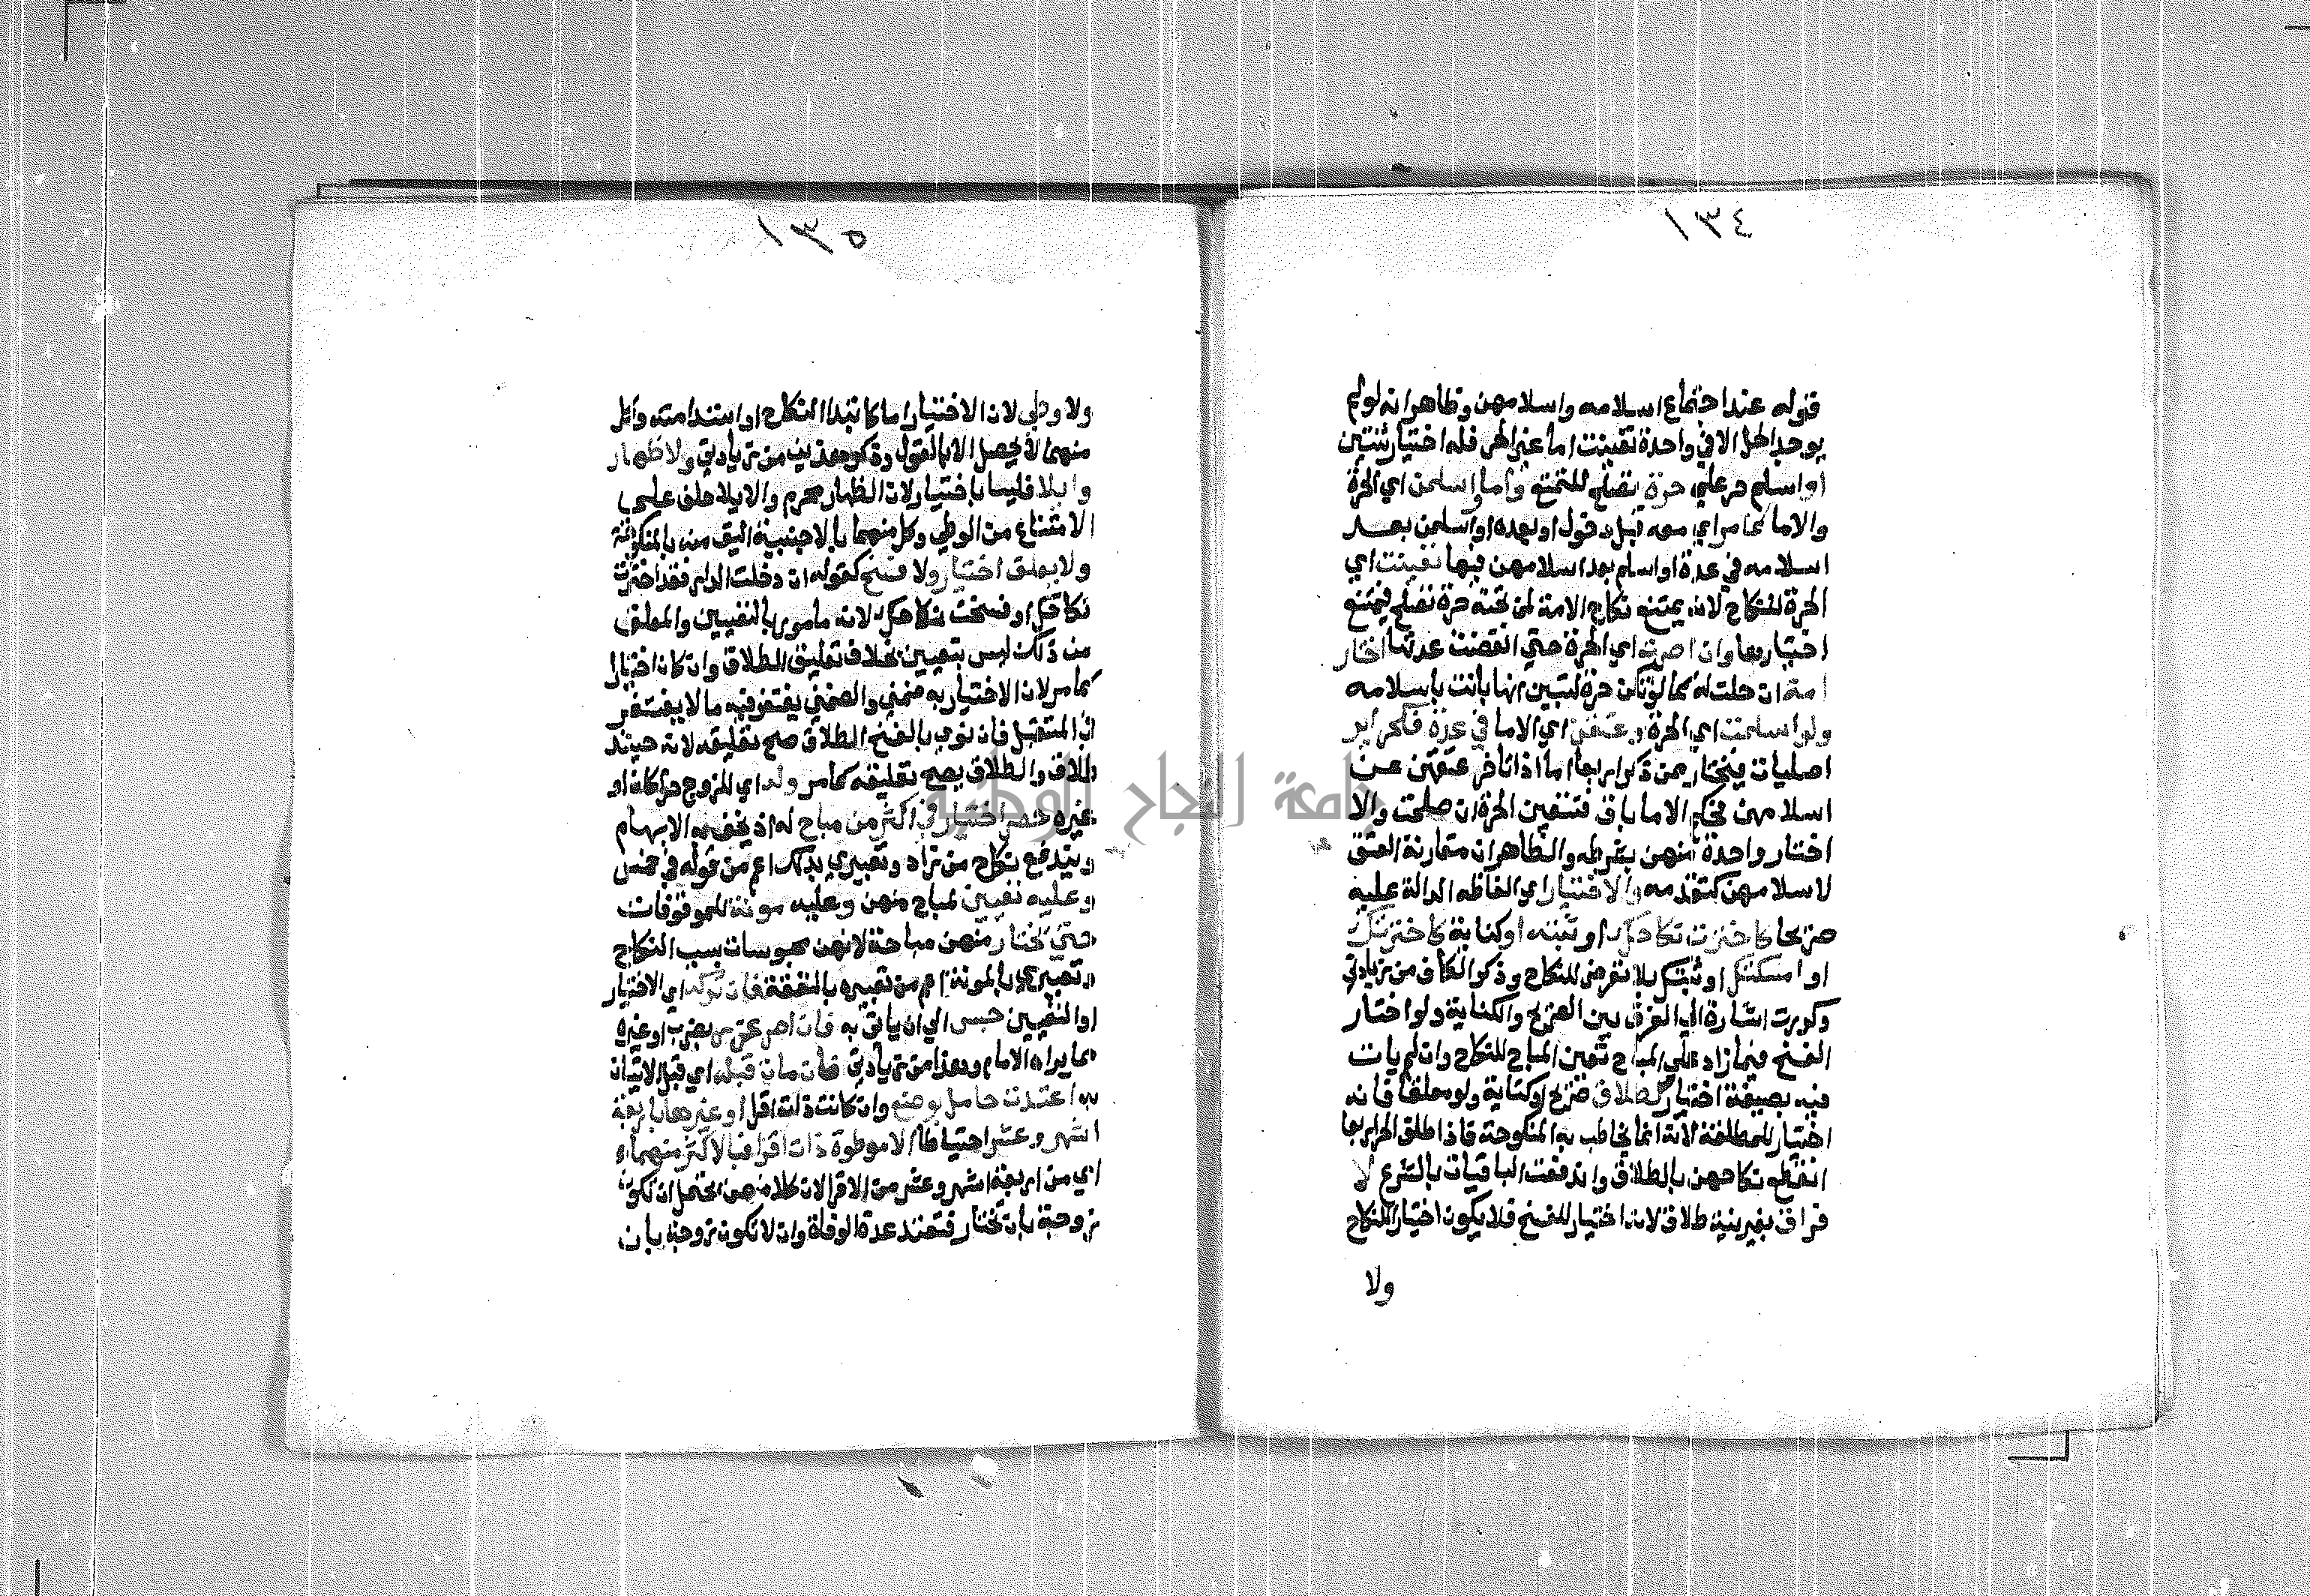 ١٣٤
قوله عند اجتماع اسلامه واسلامهن وظاهر انه لو لم
يوجد الحل الا في واحدة تعينت اما غير الحر فله اختيار ثنتين
او اسلم حر علي حرة تصلح للتمتع واما واسلمن اي الحرة
والاما كما مر اي معه قبل دخول او بعده او اسلمن بعد
اسلامه في عدة او اسلم بعد اسلامهن فيها تعينت اي
الحرة للنكاح لانه يمتنع نكاح الامة لمن تحته حرة تصلح فيمتنع
اختيارها وان اصرت اي الحرة حتي انقضت عدتها اختار
امة ان حلت له كما لو لم تكن حرة لتبين انها بانت باسلامه
ولو اسلمت اي الحرة وعتقن اي الاما في عدة فكحراير
اصليات فيختار ممن ذكر اربعا اما اذا تاخر عتقهن عن
اسلامهن فحكم الاما باق فتتعين الحرة ان صلحت والا
اختار واحدة منهن بشرطه والظاهر ان مقارنة العتق
لاسلامهن كتقدمه والاختيار اي الفاظه الدالة عليه
صريحا كاخترت نكاحك او ثبته او كناية كاخترتك
او امسكتك او ثبتك بلا تعرض للنكاح وذكر الكاف من زيادتي
وكررت اشارة الي الفرق بين الصريح والكناية ولو اختار
الفسخ فيما زاد علي المباح تعين المباح للنكاح وان لم يات
فيه بصيغة اختيار كطلاق صريح او كناية ولو معلقا فانه
اختيار للمطلقة لانه انما يخاطب به المنكوحة فاذا طلق الحر اربعا
انقطع نكاحهن بالطلاق واندفعت الباقيات بالشرع لا
فراق بغير نية طلاق لانه اختيار للفسخ فلا يكون اختيارا للنكاح
ولا
١٣٥
ولا وطي لان الاختيار اما كابتدا النكاح او استدامته وكل
منهما لا يحصل الا بالقول وذكر هذين من زيادتي ولا ظهار
وايلا فليسا باختيار لان الظهار محرم والايلا حلف علي
الامتناع من الوطي وكل منهما بالاجنبية اليق منه بالمنكوحة
ولا يعلق اختيار ولا فسخ كقوله ان دخلت الدار فقد اخترت
نكاحك او فسخت نكاحك لانه مامور بالتعيين والمعلق
من ذلك ليس بتعيين بخلاف تعليق الطلاق وان كان اختيارا
كما مر لان الاختيار به ضمني والضمني يغتفر فيه ما لا يغتفر
في المستقبل فان نوي بالفسخ الطلاق صح تعليقه لانه حينئذ
طلاق والطلاق يصح تعليقه كما مر وله اي للزوج حرا كان او
غيره حصر اختيار في اكثر من مباح له اذ يخف به الابهام
ويندفع نكاح من زاد وتعبيري بذلك اعم من قوله في خمس
وعليه تعيين لمباح منهن وعليه مونة للموقوفات
حتي يختار منهن مباحة لانهن محبوسات بسبب النكاح
وتعبيري بالمونة اعم من تعبيره بالنفقة فان تركه اي الاختيار
او التعيين حبس الي ان ياتي به فان اصر عزر بضرب او غيره
مما يراه الامام وهذا من زيادتي فان مات قبله اي قبل الاتيان
به اعتدت حامل بوضع وان كانت ذات اقرا وغيرها باربعة
اشهر وعشر احتياطا الا موطوة ذات اقرا فبالاكثر منهما
اي من اربعة اشهر وعشر من الاقرا لان كلا منهن يحتمل ان تكون
زوجة بان تختار فتعتد عدة الوفاة وان لا تكون زوجة بان
جامعة النجاح الوطنية